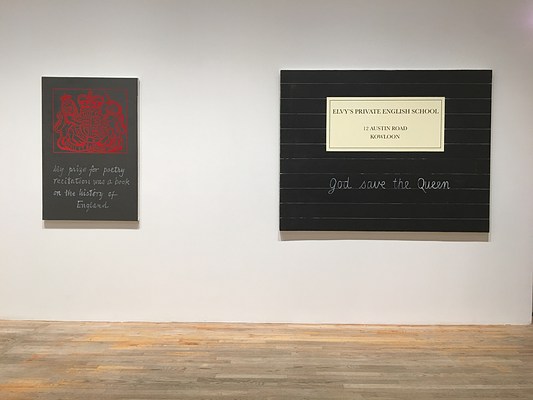 My prize for poetry
recitation was a book
on the history of
England
ELVY'S PRIVATE ENGLISH SCHOOL
12 AUSTIN ROAD
KOWLOON
God save the Queen